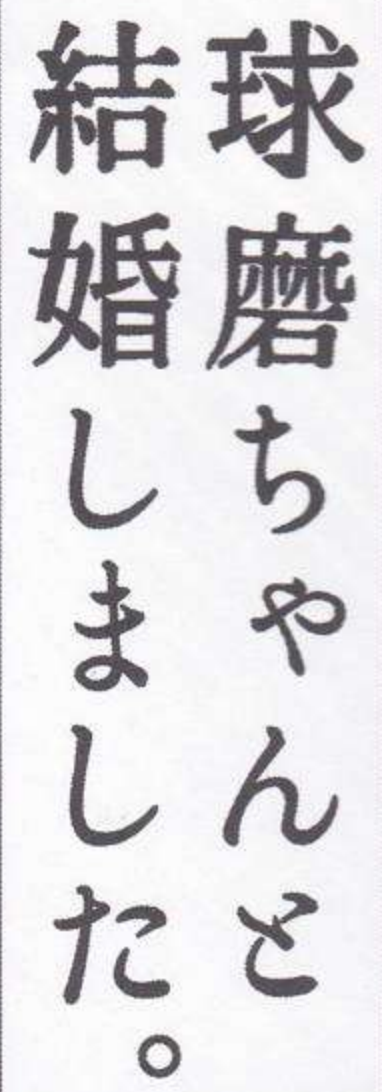 球磨ちゃんと
結婚しました。